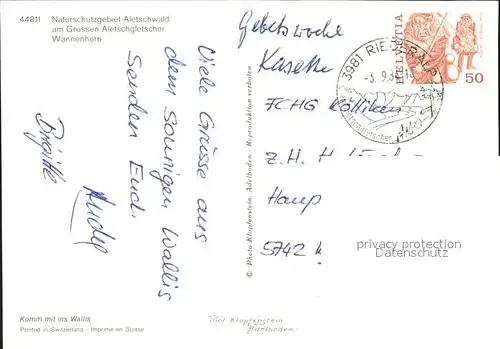 44811 Naturschutzgebiet Aletschwald
am Grossen Aletschgletscher
Wannenhorn
Viele Grüsse aus
dem sonnigen Wallis
Senden Euch
Brigitte
Komm mit ins Wallis
Printed in Switzerland - Imprimé en Suisse
© Photo Klopfenstein, Adelboden - Reproduktion verboten
Photo Klopfenstein
Adelboden
Gebetswoche
Kasette
FCHG Kölliken
Z. H.
Haup
5742 K
HELVETIA
50
3981 RIEDERALP
-3. 9.
privacy protection
Datenschutz